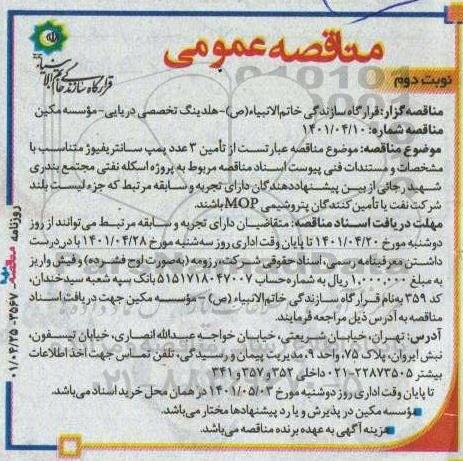 مناقصه عمومی
قرارگاه سازندگی خاتم الانبیاء
نوبت دوم
مناقصه‌گزار: قرارگاه سازندگی خاتم‌الانبیاء(ص)-هلدینگ تخصصی دریایی-مؤسسه مکین
مناقصه شماره: ۱۴۰۱/۰۴/۱۰
موضوع مناقصه: موضوع مناقصه عبارتست از تأمین ۳ عدد پمپ سانتریفیوژ متناسب با
مشخصات و مستندات فنی پیوست اسناد مناقصه مربوط به پروژه اسکله نفتی مجتمع بندری
شهید رجائی از بین پیشنهاددهندگان دارای تجربه و سابقه مرتبط که جزء لیست بلند
شرکت نفت یا تأمین کنندگان پتروشیمی MOP باشند.
مهلت دریافت اسناد مناقصه: متقاضیان دارای تجربه و سابقه مرتبط می‌توانند از روز
دوشنبه مورخ ۱۴۰۱/۰۴/۲۰ تا پایان وقت اداری روز سه‌شنبه مورخ ۱۴۰۱/۰۴/۲۸ با در دست
داشتن معرفینامه رسمی، اسناد حقوقی شرکت، رزومه (به‌صورت لوح فشرده) و فیش واریز
به مبلغ ۱,۰۰۰,۰۰۰ ریال به شماره حساب ۵۱۵۱۷۱۸۰۴۷۰۰۷ بانک سپه شعبه سیدخندان،
کد ۳۵۹ به‌نام قرارگاه سازندگی خاتم‌الانبیاء (ص)-مؤسسه مکین جهت دریافت اسناد
مناقصه به آدرس ذیل مراجعه فرمایند.
آدرس: تهران، خیابان شریعتی، خیابان خواجه عبدالله انصاری، خیابان تیسفون،
نبش ایروان، پلاک ۷۵، واحد ۹، مدیریت پیمان و رسیدگی، تلفن تماس جهت اخذ اطلاعات
بیشتر ۲۲۸۷۳۵۰۵-۰۲۱ داخل، ۳۵۲ و ۳۵۷ و ۳۴۱
تا پایان وقت اداری روز دوشنبه مورخ ۱۴۰۱/۰۵/۰۳ در همان محل خرید اسناد می‌باشد.
مؤسسه مکین در پذیرش و یا رد پیشنهادها مختار می‌باشد.
هزینه آگهی به عهده برنده مناقصه می‌باشد.
روزنامه مناقصه ۲۵۶۷ ۰۱/۰۴/۲۵